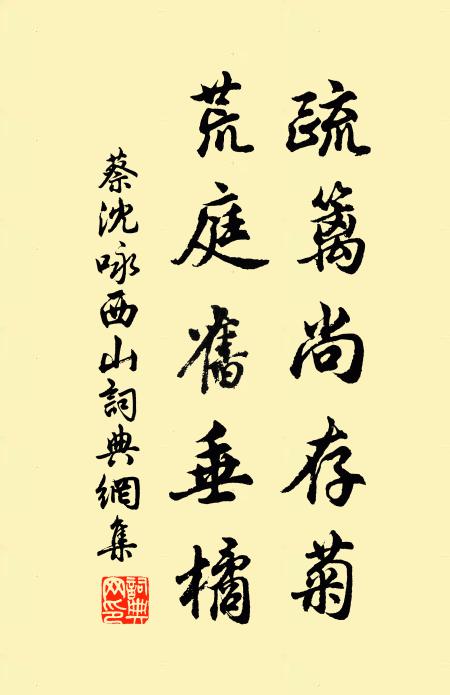 疏篱尚存菊
荒庭舊垂橘
蔡沈咏西山詞典網集
詞典网印